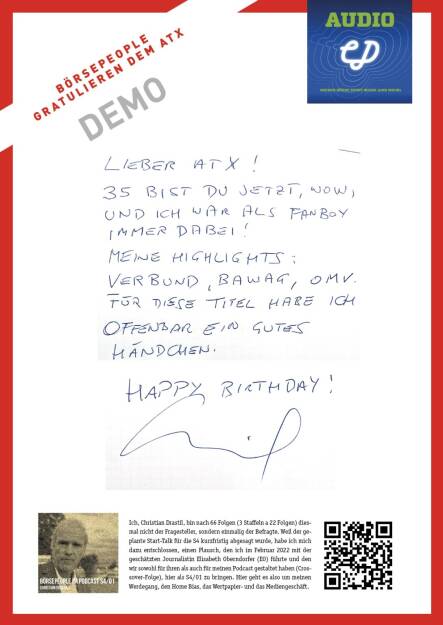 BÖRSEPEOPLE
GRATULIEREN DEM ATX
DEMO
AUDIO
CD
LIEBER ATX!
35 BIST DU JETZT, WOW,
UND ICH WAR ALS FANBOY
IMMER DABEI!
MEINE HIGHLIGHTS:
VERBUND, BAWAG, OMV.
FÜR DIESE TITEL HABE ICH
OFFENBAR EIN GUTES
HÄNDCHEN.
HAPPY BIRTHDAY!
BÖRSEPEOPLE PODCAST S4/01
Ich, Christian Drastil, bin nach 66 Folgen (3 Staffeln a 22 Folgen) dies-
mal nicht der Fragesteller, sondern einmalig der Befragte. Weil der ge-
plante Start-Talk für die S4 kurzfristig abgesagt wurde, habe ich mich
dazu entschlossen, einen Plausch, den ich im Februar 2022 mit der
geschätzten Journalistin Elisabeth Oberndorfer (EO) führte und den
wir sowohl für ihren als auch für meinen Podcast gestaltet haben (Cros-
sover-Folge), hier als S4/01 zu bringen. Hier geht es also um meinen
Werdegang, den Home Bias, das Wertpapier- und das Mediengeschäft.